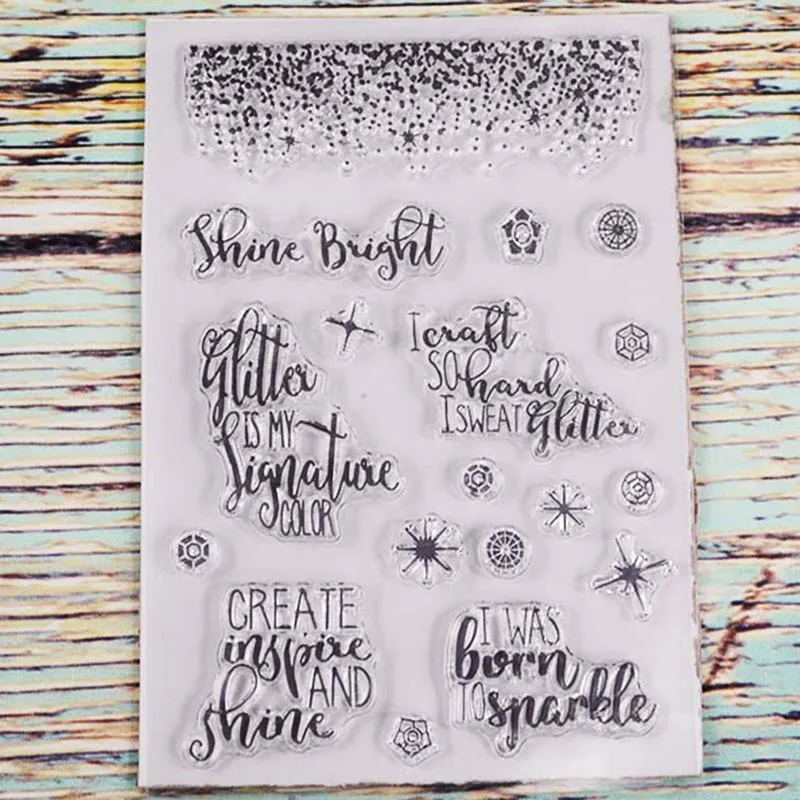 Shine Bright
Glitter
IS MY
Signature
COLOR
I craft
SO hard
I SWEAT Glitter
CREATE
inspire
AND
shine
I WAS
born
TO sparkle